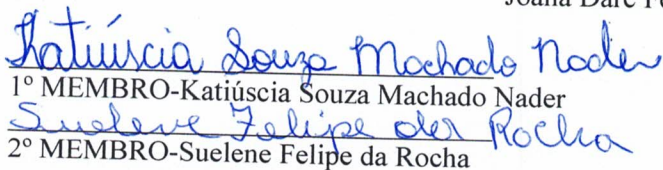 Joana Darc F
Katiúscia Souza Machado Nader
1º MEMBRO-Katiúscia Souza Machado Nader
Suelene Felipe da Rocha
2º MEMBRO-Suelene Felipe da Rocha